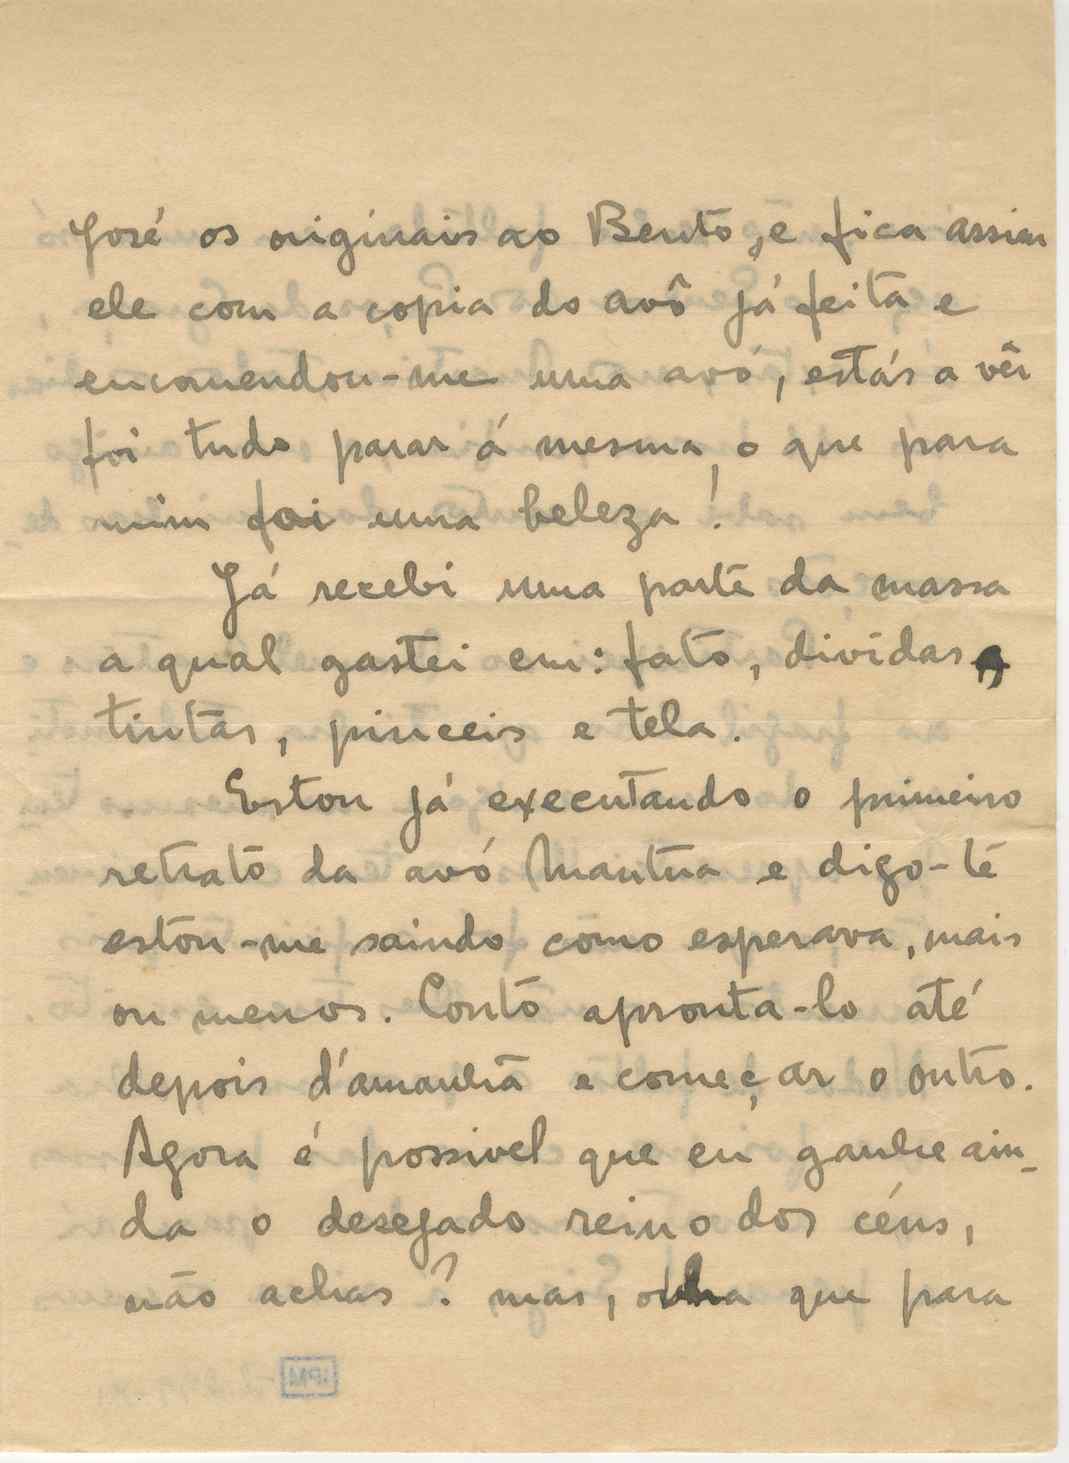 José os originais ao Bento, e fica assim
ele com a copia do avô já feita e
encomendou-me uma avó, estás a vêr
foi tudo parar á mesma, o que para
mim foi uma beleza!
Já recebi uma parte da massa
a qual gastei em: fato, dividas,
tintas, pinceis e tela.
Estou já executando o primeiro
retrato da avó Mantua e digo-te
estou-me saindo como esperava, mais
ou menos. Conto apronta-lo até
depois d'amanhã e começar o outro.
Agora é possivel que eu ganhe ain-
da o desejado reino dos céus,
não achas? mas, olha que para
IPM